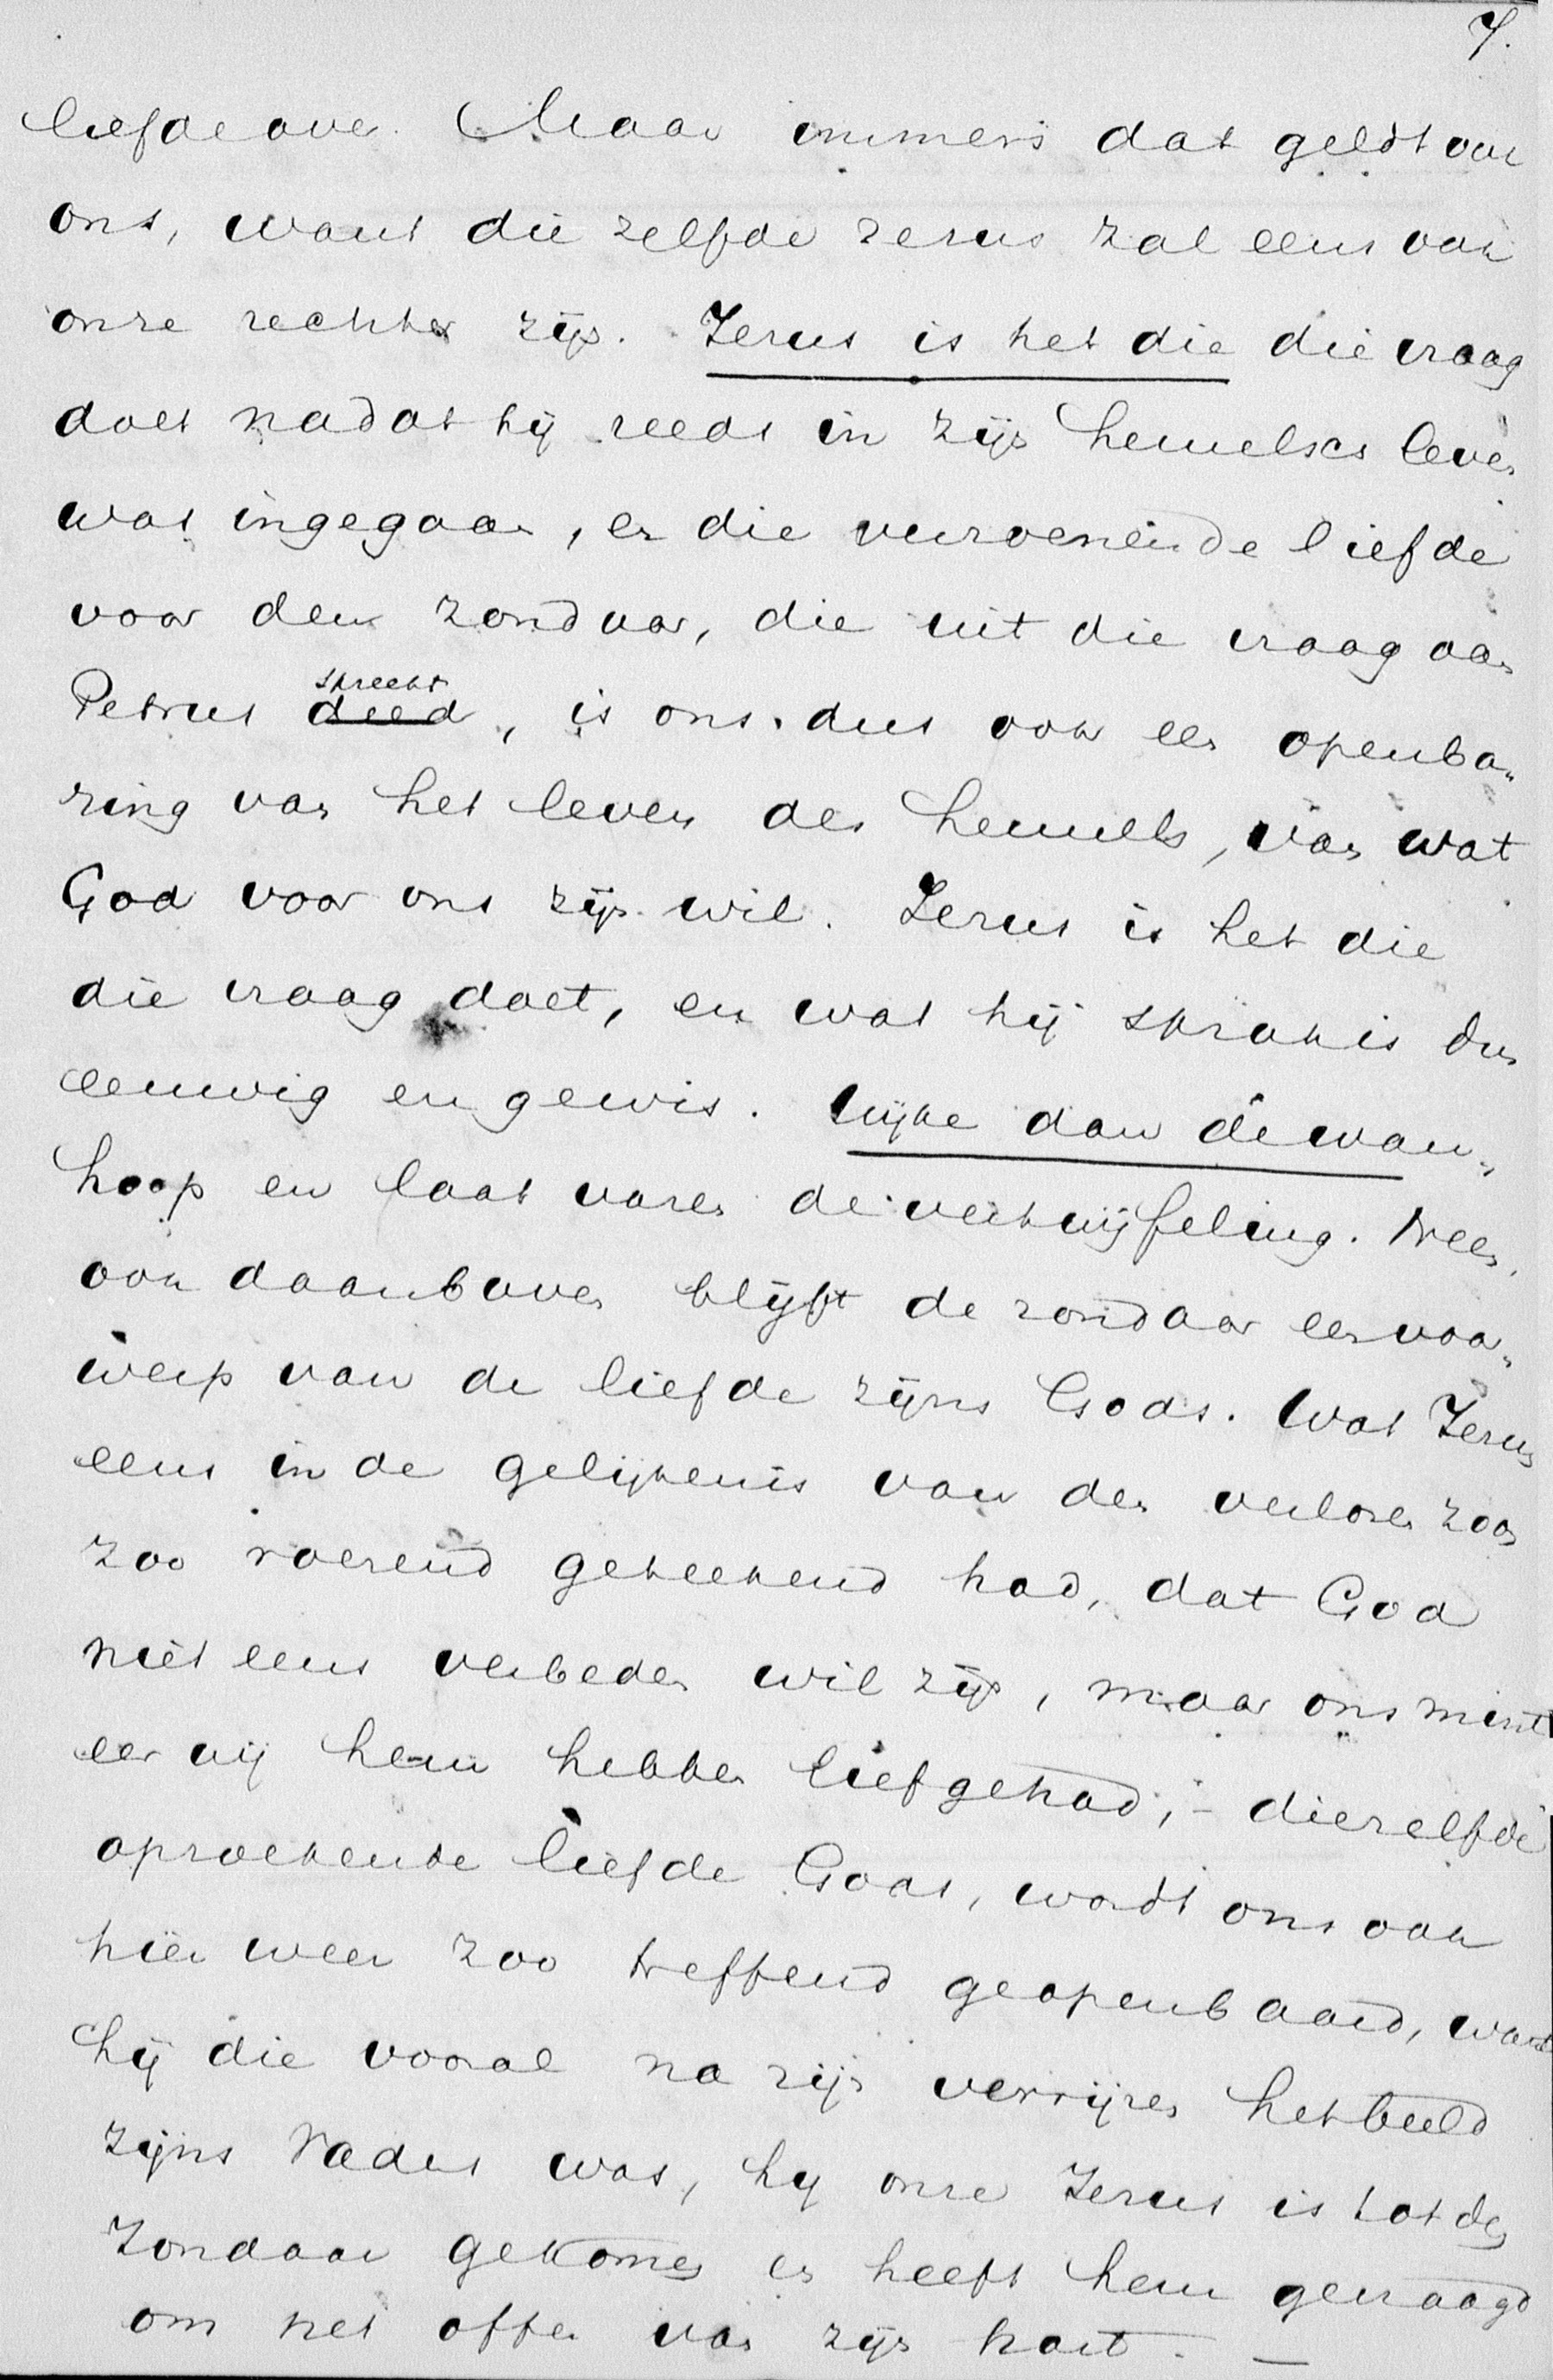 7.
liefde over. Maar immers dat geldt ook
ons, want die zelfde Jezus zal eens ook
onze rechter zijn. Jezus is het die die vraag
doet nadat hij reeds in zijn hemelsch leven
was ingegaan, en die verzoenende liefde
voor den zondaar, die uit die vraag aan
Petrus deed spreekt, is ons dus ook een openba„
ring van het leven des hemels, van wat
God voor ons zijn wil. Jezus is het die
die vraag doet, en wat hij sprak is dus
eeuwig en gewis. Wijke dan de wan„
hoop en laat varen de vertwijfeling. Neen,
ook daarboven blijft de zondaar een voor„
werp van de liefde zijns Gods. Wat Jezus
eens in de gelijkenis van den verloren zoon
zoo roerend geteekend had, dat God
niet eens verbeden wil zijn, maar ons mint
eer wij hem hebben liefgehad, – diezelfde
opzoekende liefde Gods, wordt ons ook
hier weer zoo treffend geopenbaard, want
hij die vooral na zijn verrijzen het beeld
zijns Vaders was, hij onze Jezus is tot den
zondaar gekomen en heeft hem gevraagd
om het offer van zijn hart. —